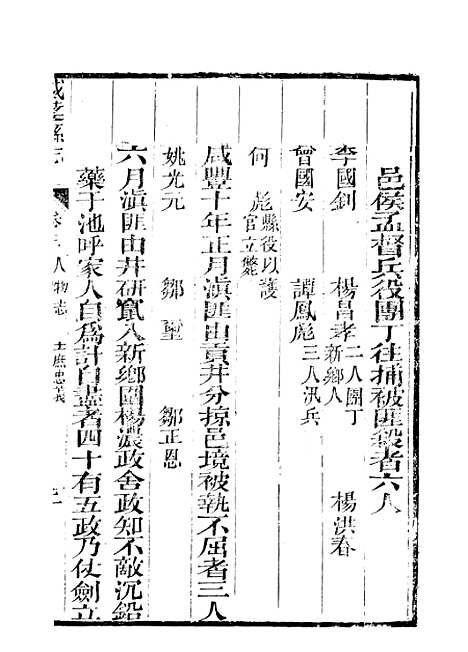 邑侯孟督兵役團丁往捕被匪殺者六人
李國釗 楊昌孝二人團丁新鄉人 楊洪春
曾國安 譚鳳彪三人汛兵
何彪縣役以護官立斃
咸豐十年正月滇匪由貢井分掠邑境被執不屈者三人
姚光元 鄒璽 鄒正恩
六月滇匪由井研竄入新鄉圍楊濃政舍政知不敵沉鉛
藥于池呼家人自爲計自盡者四十有五政乃仗劍立
威遠縣志 卷三 人物志 士庶忠義